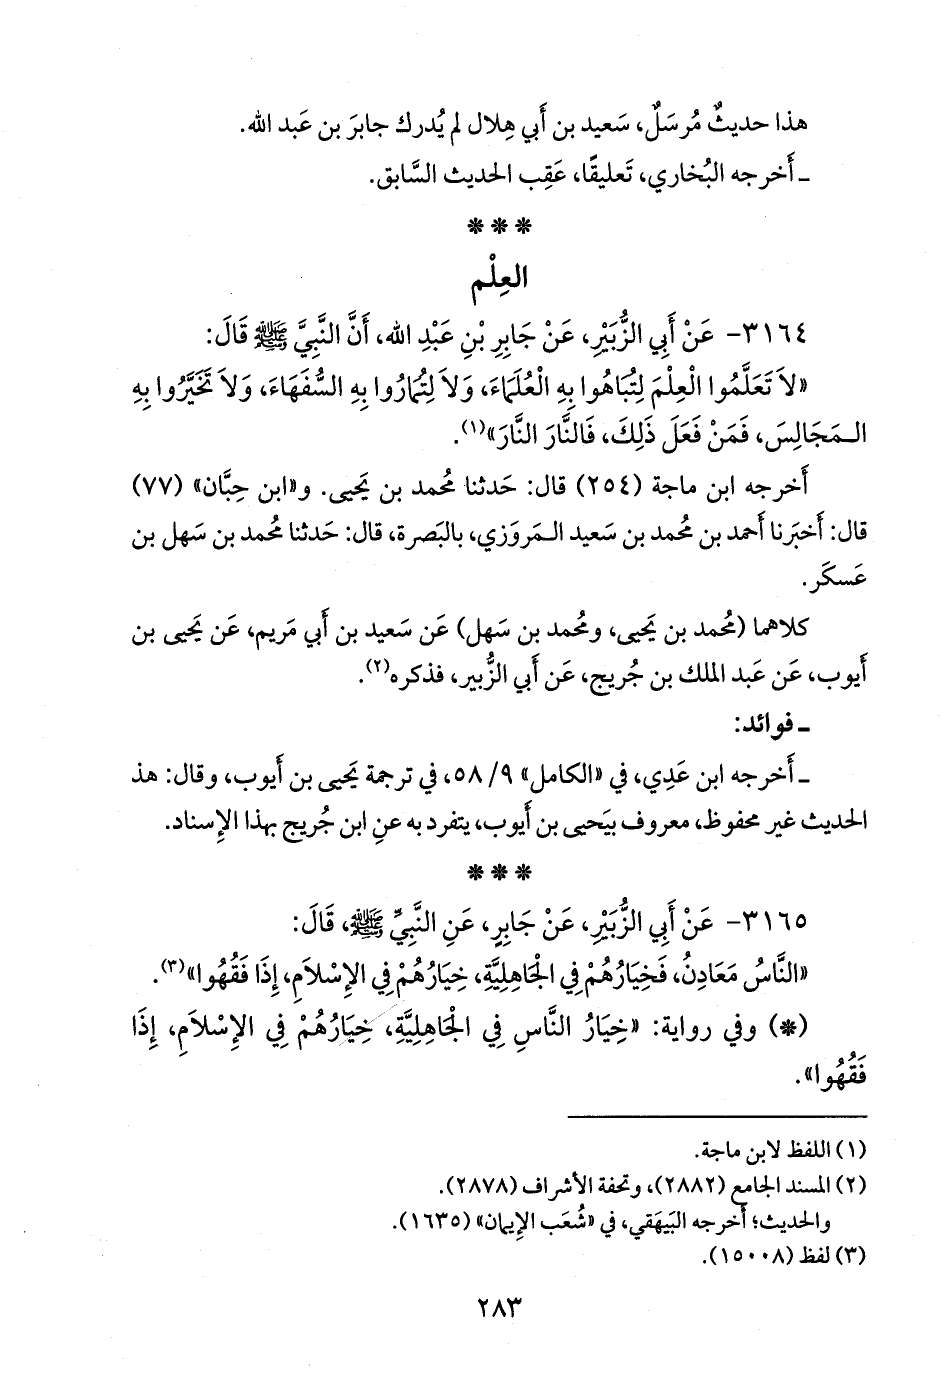 هذا حديثٌ مُرسَلٌ، سَعيد بن أَبي هِلال لم يُدرك جابرَ بن عَبد الله.
ـ أَخرجه البُخاري، تَعليقًا، عَقِب الحديث السَّابق.
* * *
العِلْم
٣١٦٤- عَنْ أَبِي الزُّبَيْرِ، عَنْ جَابِرِ بْنِ عَبْدِ الله، أَنَّ النَّبِيَّ ﷺ قَالَ:
«لاَ تَعَلَّمُوا الْعِلْمَ لِتُبَاهُوا بِهِ الْعُلَمَاءَ، وَلاَ لِتُمَارُوا بِهِ السُّفَهَاءَ، وَلاَ تَخَيَّرُوا بِهِ
الـمَجَالِسَ، فَمَنْ فَعَلَ ذَلِكَ، فَالنَّارَ النَّارَ»(١).
أَخرجه ابن ماجة (٢٥٤) قال: حَدثنا مُحمد بن يَحيى. و«ابن حِبَّان» (٧٧)
قال: أَخبَرنا أَحمد بن مُحمد بن سَعيد الـمَروَزي، بالبَصرة، قال: حَدثنا مُحمد بن سَهل بن
عَسكَر.
كلاهما (مُحمد بن يَحيى، ومُحمد بن سَهل) عَن سَعيد بن أَبي مَريم، عَن يَحيى بن
أَيوب، عَن عَبد الملك بن جُريج، عَن أَبي الزُّبير، فذكره(٢).
ـ فوائد:
ـ أَخرجه ابن عَدي، في «الكامل» ٩/ ٥٨، في ترجمة يَحيى بن أَيوب، وقال: هذ
الحديث غير محفوظ، معروف بيَحيى بن أَيوب، يتفرد به عنِ ابن جُريج بهذا الإِسناد.
* * *
٣١٦٥- عَنْ أَبِي الزُّبَيْرِ، عَنْ جَابِرٍ، عَنِ النَّبِيِّ ﷺ، قَالَ:
«النَّاسُ مَعَادِنُ، فَخِيَارُهُمْ فِي الْجَاهِلِيَّةِ، خِيَارُهُمْ فِي الإِسْلاَمِ، إِذَا فَقُهُوا»(٣).
(*) وفي رواية: «خِيَارُ النَّاسِ فِي الْجَاهِلِيَّةِ، خِيَارُهُمْ فِي الإِسْلاَمِ، إِذَا
فَقُهُوا».
(١) اللفظ لابن ماجة.
(٢) المسند الجامع (٢٨٨٢)، وتحفة الأشراف (٢٨٧٨).
والحديث؛ أَخرجه البَيهَقي، في «شُعَب الإِيمان» (١٦٣٥).
(٣) لفظ (١٥٠٠٨).
٢٨٣